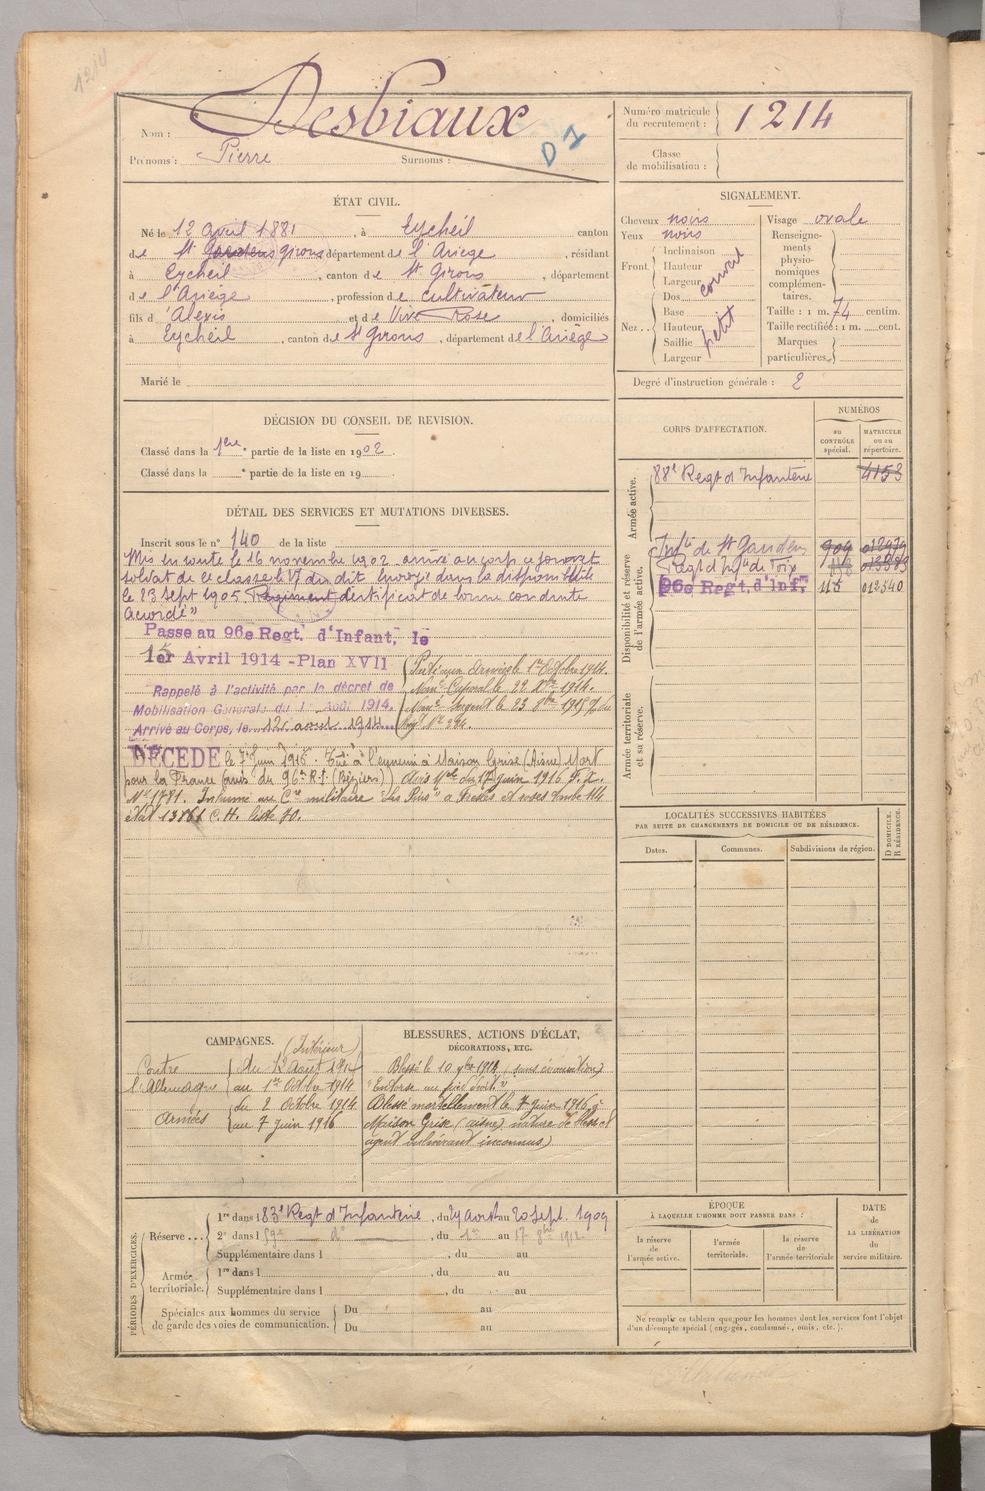 1214
Nom : Desbiaux
D 1
Prénoms : Pierre Surnoms :
Numéro matricule du recrutement : 1214
Classe de mobilisation :
ÉTAT CIVIL.
Né le 12 avril 1881, à Eycheil canton
de St Gaudens Girons département de l'Ariège, résidant
à Eycheil, canton de St Girons, département
de l'Ariège, profession de cultivateur
fils d'Alexis et de Vive Rose, domiciliés
à Eycheil, canton de St Girons, département de l'Ariège
Marié le
SIGNALEMENT.
Cheveux noirs
Yeux noirs
Front Inclinaison Hauteur Largeur couvert
Nez Dos Base Hauteur Saillie Largeur petit
Visage ovale
Renseignements physionomiques complémentaires.
Taille : 1 m. 74 centim.
Taille rectifiée : 1 m. cent.
Marques particulières
Degré d'instruction générale : 2
DÉCISION DU CONSEIL DE REVISION.
Classé dans la 1ere partie de la liste en 1902.
Classé dans la e partie de la liste en 19
DÉTAIL DES SERVICES ET MUTATIONS DIVERSES.
Inscrit sous le n° 140 de la liste
Mis en route le 16 novembre 1902 arrivé au corps ce jour et
soldat de 2e classe le 17 du dit. Envoyé dans la disponibilité
le 23 Sept 1905. Régiment Certificat de bonne conduite
accordé"
Passe au 96e Regt. d'Infant, le
1er Avril 1914 - Plan XVII
Rappelé à l'activité par le décret de
Mobilisation Générale du 1 Août 1914.
Arrivé au Corps, le 12 août 1914
Parti aux Armées le 1er Octobre 1914.
Nommé Caporal le 22 1914.
Nommé Sergent le 23 8bre 1915
DÉCÉDÉ le 7 Juin 1916. Tué à l'ennemi à Maison Grise (Aisne) Mort
pour la France (avis du 96e R.I. (Béziers)) Avis Mel du 17 juin 1916
N° 1781. Inhumé au Cre militaire "Les Pins" à
état 13861 C.H. liste 70.
CORPS D'AFFECTATION.
NUMÉROS
au CONTRÔLE spécial.
MATRICULE ou au répertoire.
Armée active.
88e Regt d'Infanterie 4153
Disponibilité et réserve de l'armée active.
Inftie de St Gaudens 904
Regt d'Inftie de Foix
96e Regt. d'Inf. 115 012340
Armée territoriale et sa réserve.
LOCALITÉS SUCCESSIVES HABITÉES
PAR SUITE DE CHANGEMENTS DE DOMICILE OU DE RÉSIDENCE.
Dates. Communes. Subdivisions de région. D DOMICILE. R RÉSIDENCE.
CAMPAGNES.
(Intérieur)
Contre l'Allemagne
du 12 Août 1914
au 1er Octobre 1914
Armées
du 2 Octobre 1914
au 7 juin 1916
BLESSURES, ACTIONS D'ÉCLAT,
DÉCORATIONS, ETC.
Blessé le 10 1914 (sans évacuation)
"Entorse au pied droit"
Blessé mortellement le 7 juin 1916 à
Maison Grise (Aisne) nature de bless et
agent vulnérant inconnus)
PÉRIODES D'EXERCICES.
Réserve ...
1re dans l 83e Regt d'Infanterie, du 24 Août au 20 Sept. 1909
2e dans l 59e do, du 1er au 17 8bre 1912
Supplémentaire dans l , du au
Armée territoriale.
1re dans l , du au
Supplémentaire dans l , du au
Spéciales aux hommes du service de garde des voies de communication.
Du au
Du au
ÉPOQUE
À LAQUELLE L'HOMME DOIT PASSER DANS :
la réserve de l'armée active.
l'armée territoriale.
la réserve de l'armée territoriale
DATE de LA LIBÉRATION du service militaire.
Ne remplir ce tableau que pour les hommes dont les services font l'objet
d'un décompte spécial (engagés, condamnés, omis, etc.).